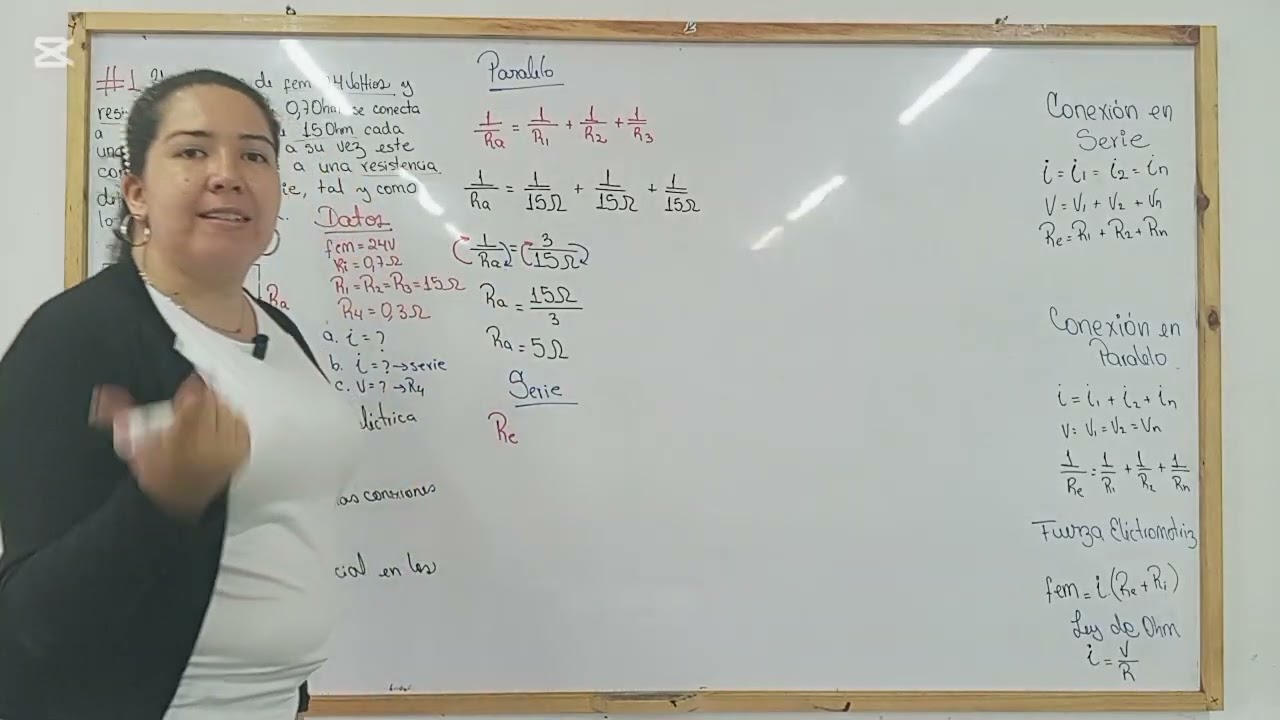 #1 de fem 24 Voltios y
0,7 Ohm se conecta
a 15 Ohm cada
una a su vez este
a una resistencia
tal y como
Datos
fem = 24V
Ri = 0,7Ω
R1 = R2 = R3 = 15Ω
R4 = 0,3Ω
Ra
a. i = ?
b. i = ? → serie
c. V = ? → R4
conexiones
en los
Paralelo
1/Ra = 1/R1 + 1/R2 + 1/R3
1/Ra = 1/15Ω + 1/15Ω + 1/15Ω
1/Ra = 3/15Ω
Ra = 15Ω/3
Ra = 5Ω
Serie
Re
Conexión en
Serie
i = i1 = i2 = in
V = V1 + V2 + Vn
Re = R1 + R2 + Rn
Conexión en
Paralelo
i = i1 + i2 + in
V = V1 = V2 = Vn
1/Re = 1/R1 + 1/R2 + 1/Rn
Fuerza Electromotriz
fem = i(Re + Ri)
Ley de Ohm
i = V/R